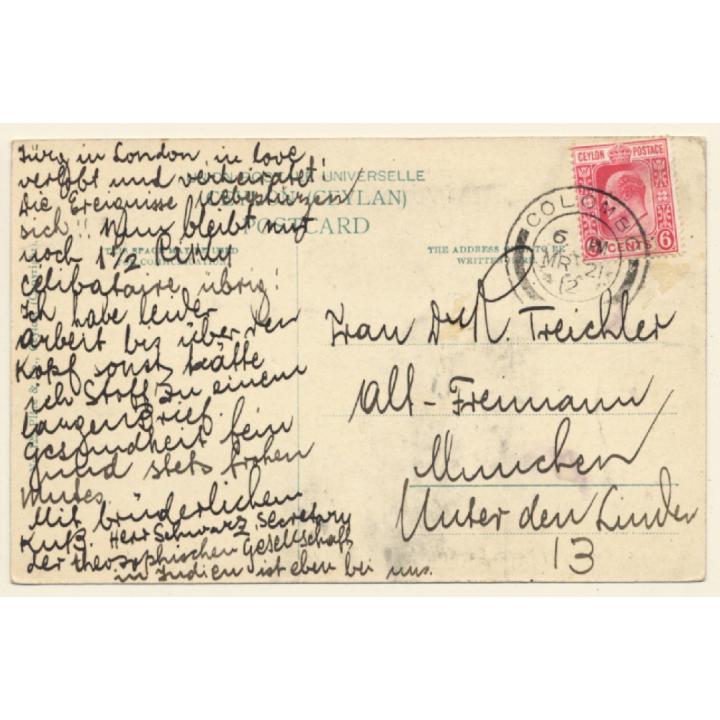 Jürg in London, in love
verlobt und verheiratet!
Die Ereignisse überstürzen
sich!! Nun bleibt nur
noch 1 1/2
célibataire übrig!
Ich habe leider
Arbeit bis über den
Kopf sonst hätte
ich Stoff zu einem
langen Brief.
Gesundheit fein
und stets frohen
Mutes.
Mit brüderlichem
Kuß. Herr Schwarz Secretary
der theosophischen Gesellschaft
in Indien ist eben bei uns.
UNION POSTALE UNIVERSELLE
CEYLON (CEYLAN)
POSTCARD
THE ADDRESS TO BE
WRITTEN HERE.
CEYLON POSTAGE
6 CENTS 6
COLOMBO
6 PM
MR 21
12
Frau Dr R. Treichler
Alt-Freimann
München
Unter den Linden
13